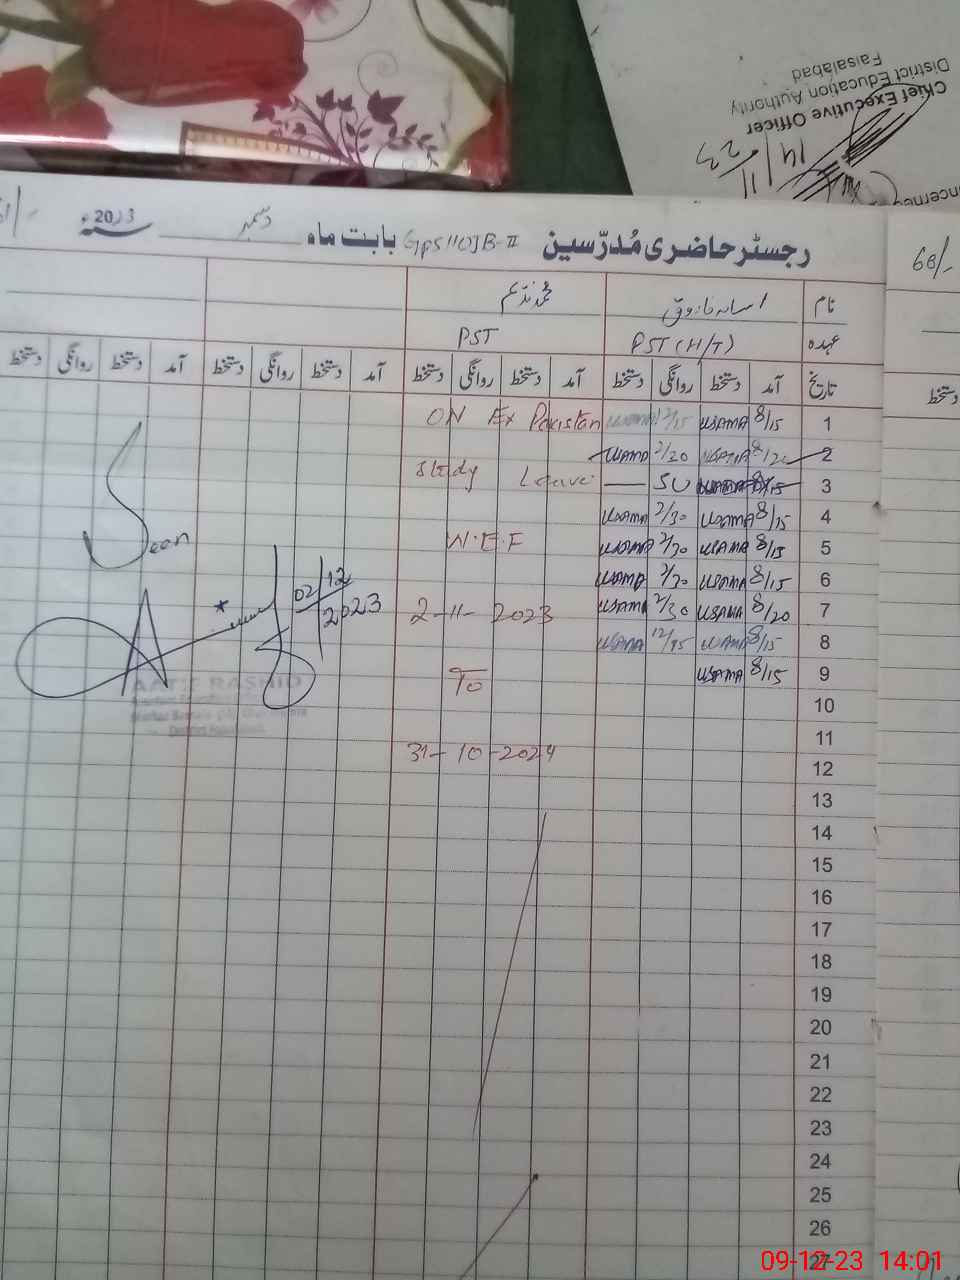 Chief Executive Officer
District Education Authority
Faisalabad
14/11/23
60/-
رجسٹر حاضری مُدرّسین GPS 110JB-II بابت ماہ دسمبر سنہ 2023ء
نام اسامہ فاروق محمد ندیم
عہدہ PST (H/T) PST
تاریخ آمد دستخط روانگی دستخط آمد دستخط روانگی دستخط آمد دستخط روانگی دستخط آمد دستخط روانگی دستخط
دستخط
1 8/15 USAMA 12/15 USAMA ON Ex Pakistan
2 8/20 USAMA 2/20 USAMA
3 8/15 SU Study Leave
4 8/15 USAMA 2/30 USAMA
5 8/15 USAMA 2/30 USAMA W.E.F
6 8/15 USAMA 2/30 USAMA
7 8/20 USAMA 2/30 USAMA 2-11-2023
8 8/15 USAMA USAMA
9 8/15 USAMA To
10
11
12 31-10-2024
13
14
15
16
17
18
19
20
21
22
23
24
25
26
27
Seen
02/12
2023
AATIF RASHID
09-12-23 14:01